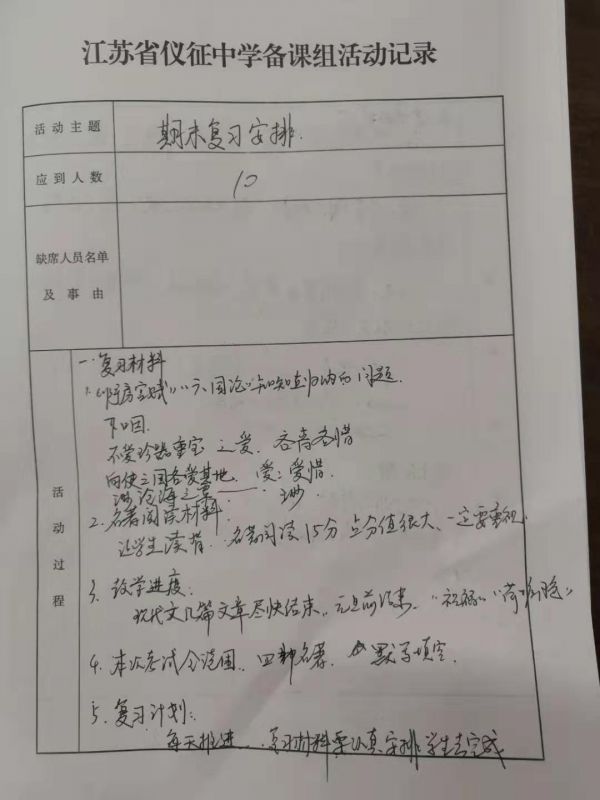 江苏省仪征中学备课组活动记录
活动主题
期末复习安排.
应到人数
10
缺席人员名单
及事由
活动过程
一.复习材料
1.《阿房宫赋》《六国论》知识归纳的问题.
不爱珍器重宝 之爱. 吝啬吝惜
向使三国各爱其地. 爱:爱惜
渺沧海之粟 渺
2.名著阅读材料.
让学生读背. 名著阅读15分 占分值很大、一定要重视.
3.教学进度.
现代文几篇文章尽快结束. 元旦前结束. “祝福”
4.本次考试全范围. 四种名著. 默写填空.
5.复习计划:
每天推进. 复习材料要认真安排学生去完成